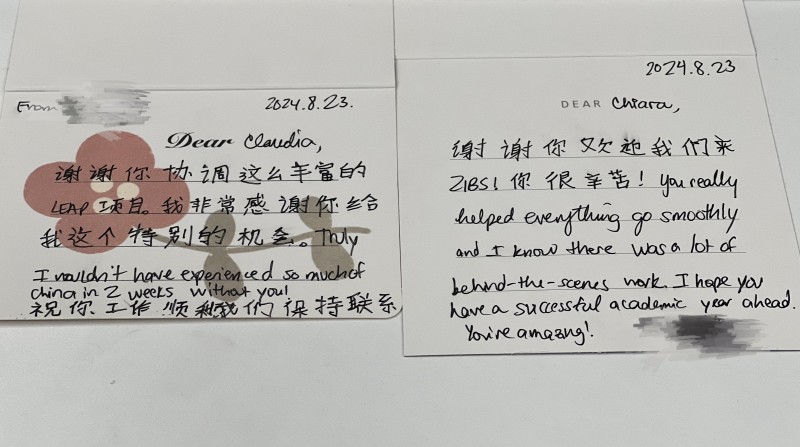 From
2024.8.23.
Dear Claudia,
谢谢你协调这么丰富的
LEAP项目。我非常感谢你给
我这个特别的机会。Truly
I wouldn't have experienced so much of
china in 2 weeks without you!
祝你工作顺利我们保持联系
2024.8.23
DEAR Chiara,
谢谢你欢迎我们来
ZIBS! 你很辛苦! You really
helped everything go smoothly
and I know there was a lot of
behind-the-scenes work. I hope you
have a successful academic year ahead.
You're amazing!